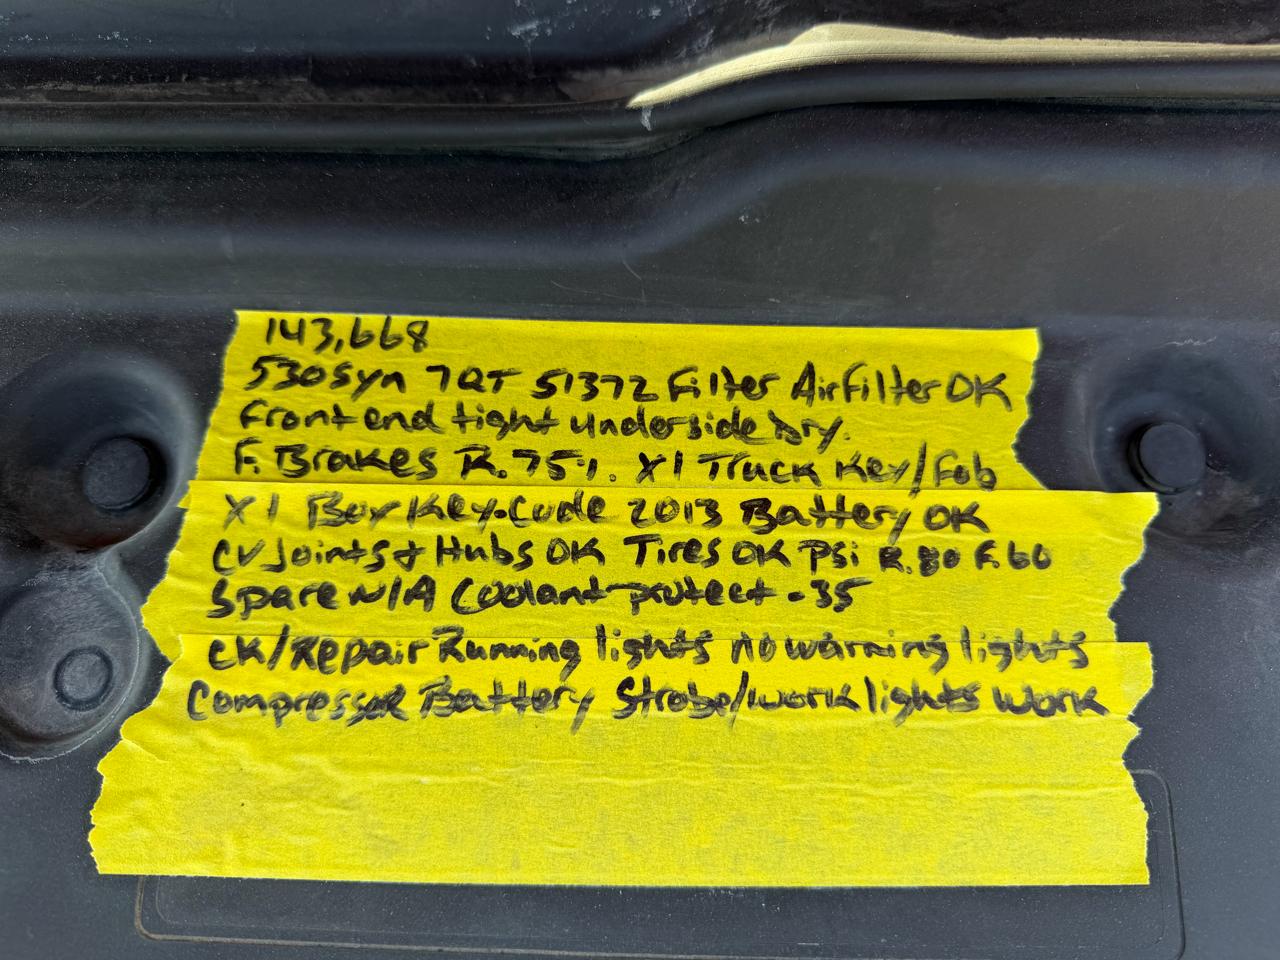 143,668
530Syn 7QT 51372 Filter Air Filter OK
Front end tight underside Dry.
F. Brakes R. 75%. X1 Truck Key/Fob
X1 Box Key. Code 2013 Battery OK
CV Joints + Hubs OK Tires OK PSi R.80 F.60
Spare N/A Coolant protect -35
CK/Repair Running lights no warning lights
Compressor Battery Strobe/work lights work